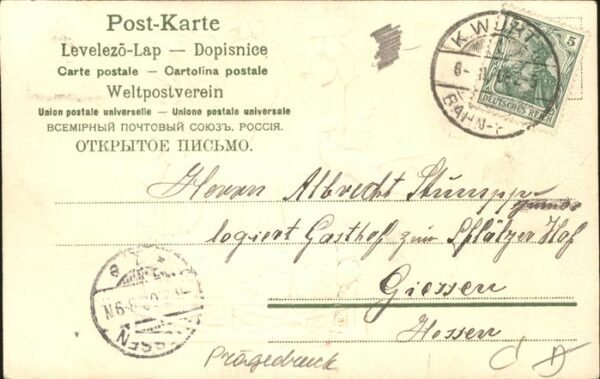 Post-Karte
Levelezõ-Lap — Dopisnice
Carte postale — Cartolina postale
Weltpostverein
Union postale universelle — Unione postale universale
ВСЕМІРНЫЙ ПОЧТОВЫЙ СОЮЗЪ. РОССІЯ.
ОТКРЫТОЕ ПИСЬМО.
K.W.
BAHN-
5
DEUTSCHES REICH
Herrn Albrecht Stumpp
logiert Gasthof zum Pfälzer Hof
Giessen
Hessen
GIESSEN
Prägedruck